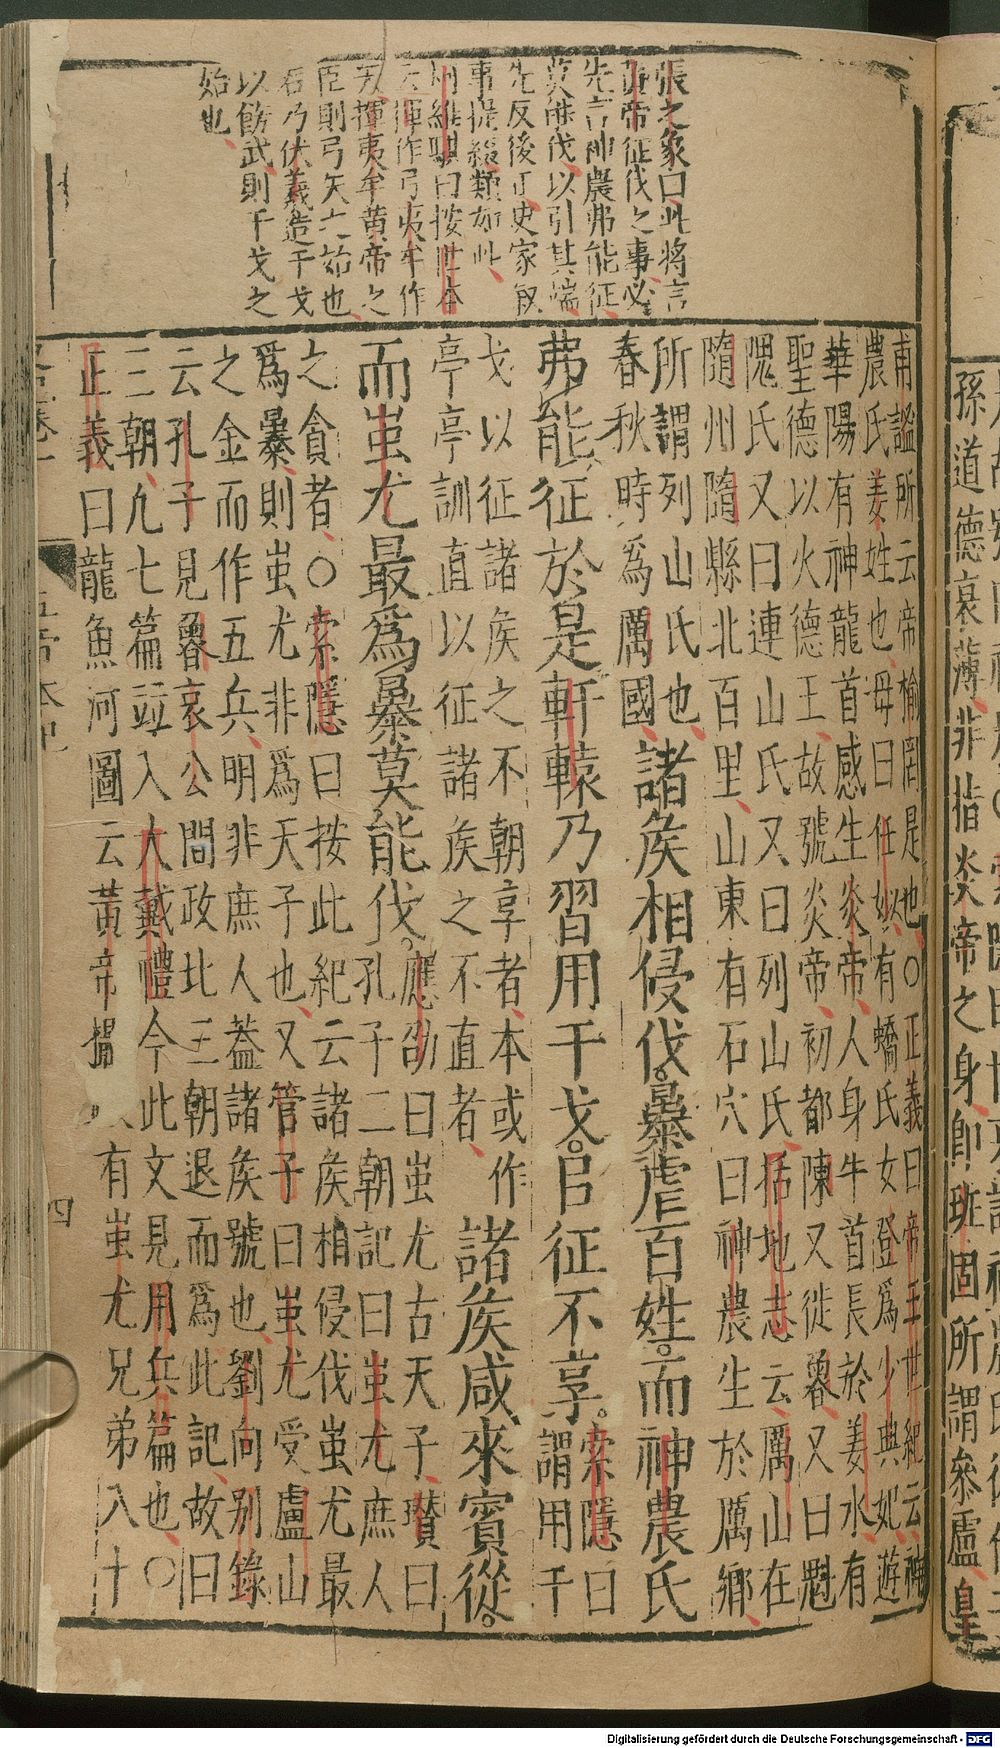 孫道德衰薄非指炎帝之身即班固所謂參盧皇
張之象曰此將言
黃帝征伐之事必
先言神農弗能征
莫能伐以引其端
先反後正史家敘
事提綴類如此
柯維騏曰按世本
云揮作弓夷牟作
矢揮夷牟黃帝之
臣則弓矢之始也
昔乃伏羲造干戈
以飭武則干戈之
始也
甫謐所云帝榆罔是也○正義曰帝王世紀云神
農氏姜姓也母曰任姒有蟜氏女登爲少典妃遊
華陽有神龍首感生炎帝人身牛首長於姜水有
聖德以火德王故號炎帝初都陳又徙魯又曰魁
隗氏又曰連山氏又曰列山氏括地志云厲山在
隨州隨縣北百里山東有石穴曰神農生於厲鄉
所謂列山氏也
春秋時爲厲國
諸侯相侵伐。暴虐百姓。而神農氏
弗能征於是軒轅乃習用干戈。㠯征不享。
索隱曰
謂用干
戈以征諸侯之不朝享者本或作
亭亭訓直以征諸侯之不直者
諸侯咸來賓從。
而蚩尤最爲暴莫能伐。
應劭曰蚩尤古天子瓚曰
孔子二朝記曰蚩尤庶人
之貪者○索隱曰按此紀云諸侯相侵伐蚩尤最
爲暴則蚩尤非爲天子也又管子曰蚩尤受盧山
之金而作五兵明非庶人蓋諸侯號也劉向別錄
云孔子見魯哀公問政比三朝退而爲此記故曰
三朝凢七篇竝入大戴禮今此文見用兵篇也○
正義曰龍魚河圖云黃帝攝有蚩尤兄弟八十
五帝本紀
四
Digitalisierung gefördert durch die Deutsche Forschungsgemeinschaft - DFG